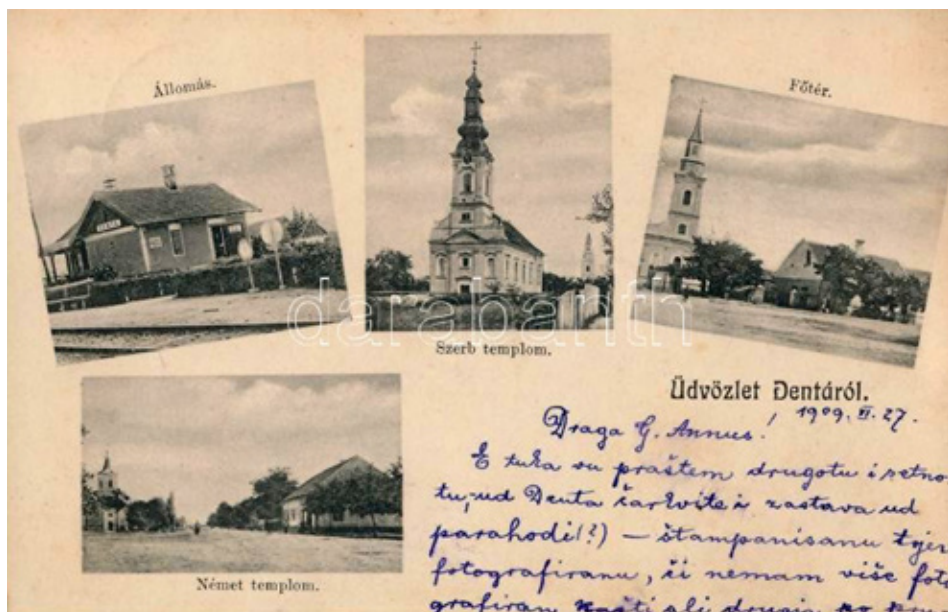 Állomás.
Főtér.
Szerb templom.
darabanth
Üdvözlet Dentáról.
1909. II. 27.
Draga G. Annus!
E tuka vu praštem drugotu i setno
tu, ud Denta čarkvite i zastava ud
parahodi(?) — štampanisanu
fotografiranu, či nemam više foto
grafiram
Német templom.